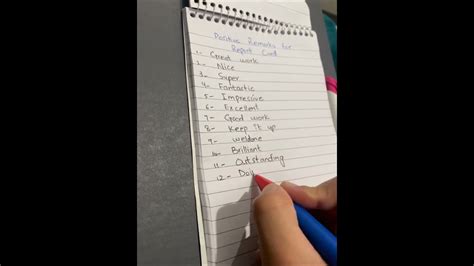 Positive Remarks For
Report Card
1- Great work
2- Nice
3- Super
4- Fantastic
5- Impressive
6- Excellent
7- Good work
8- Keep It up
9- weldone
10- Brilliant
11- Outstanding
12- Doi